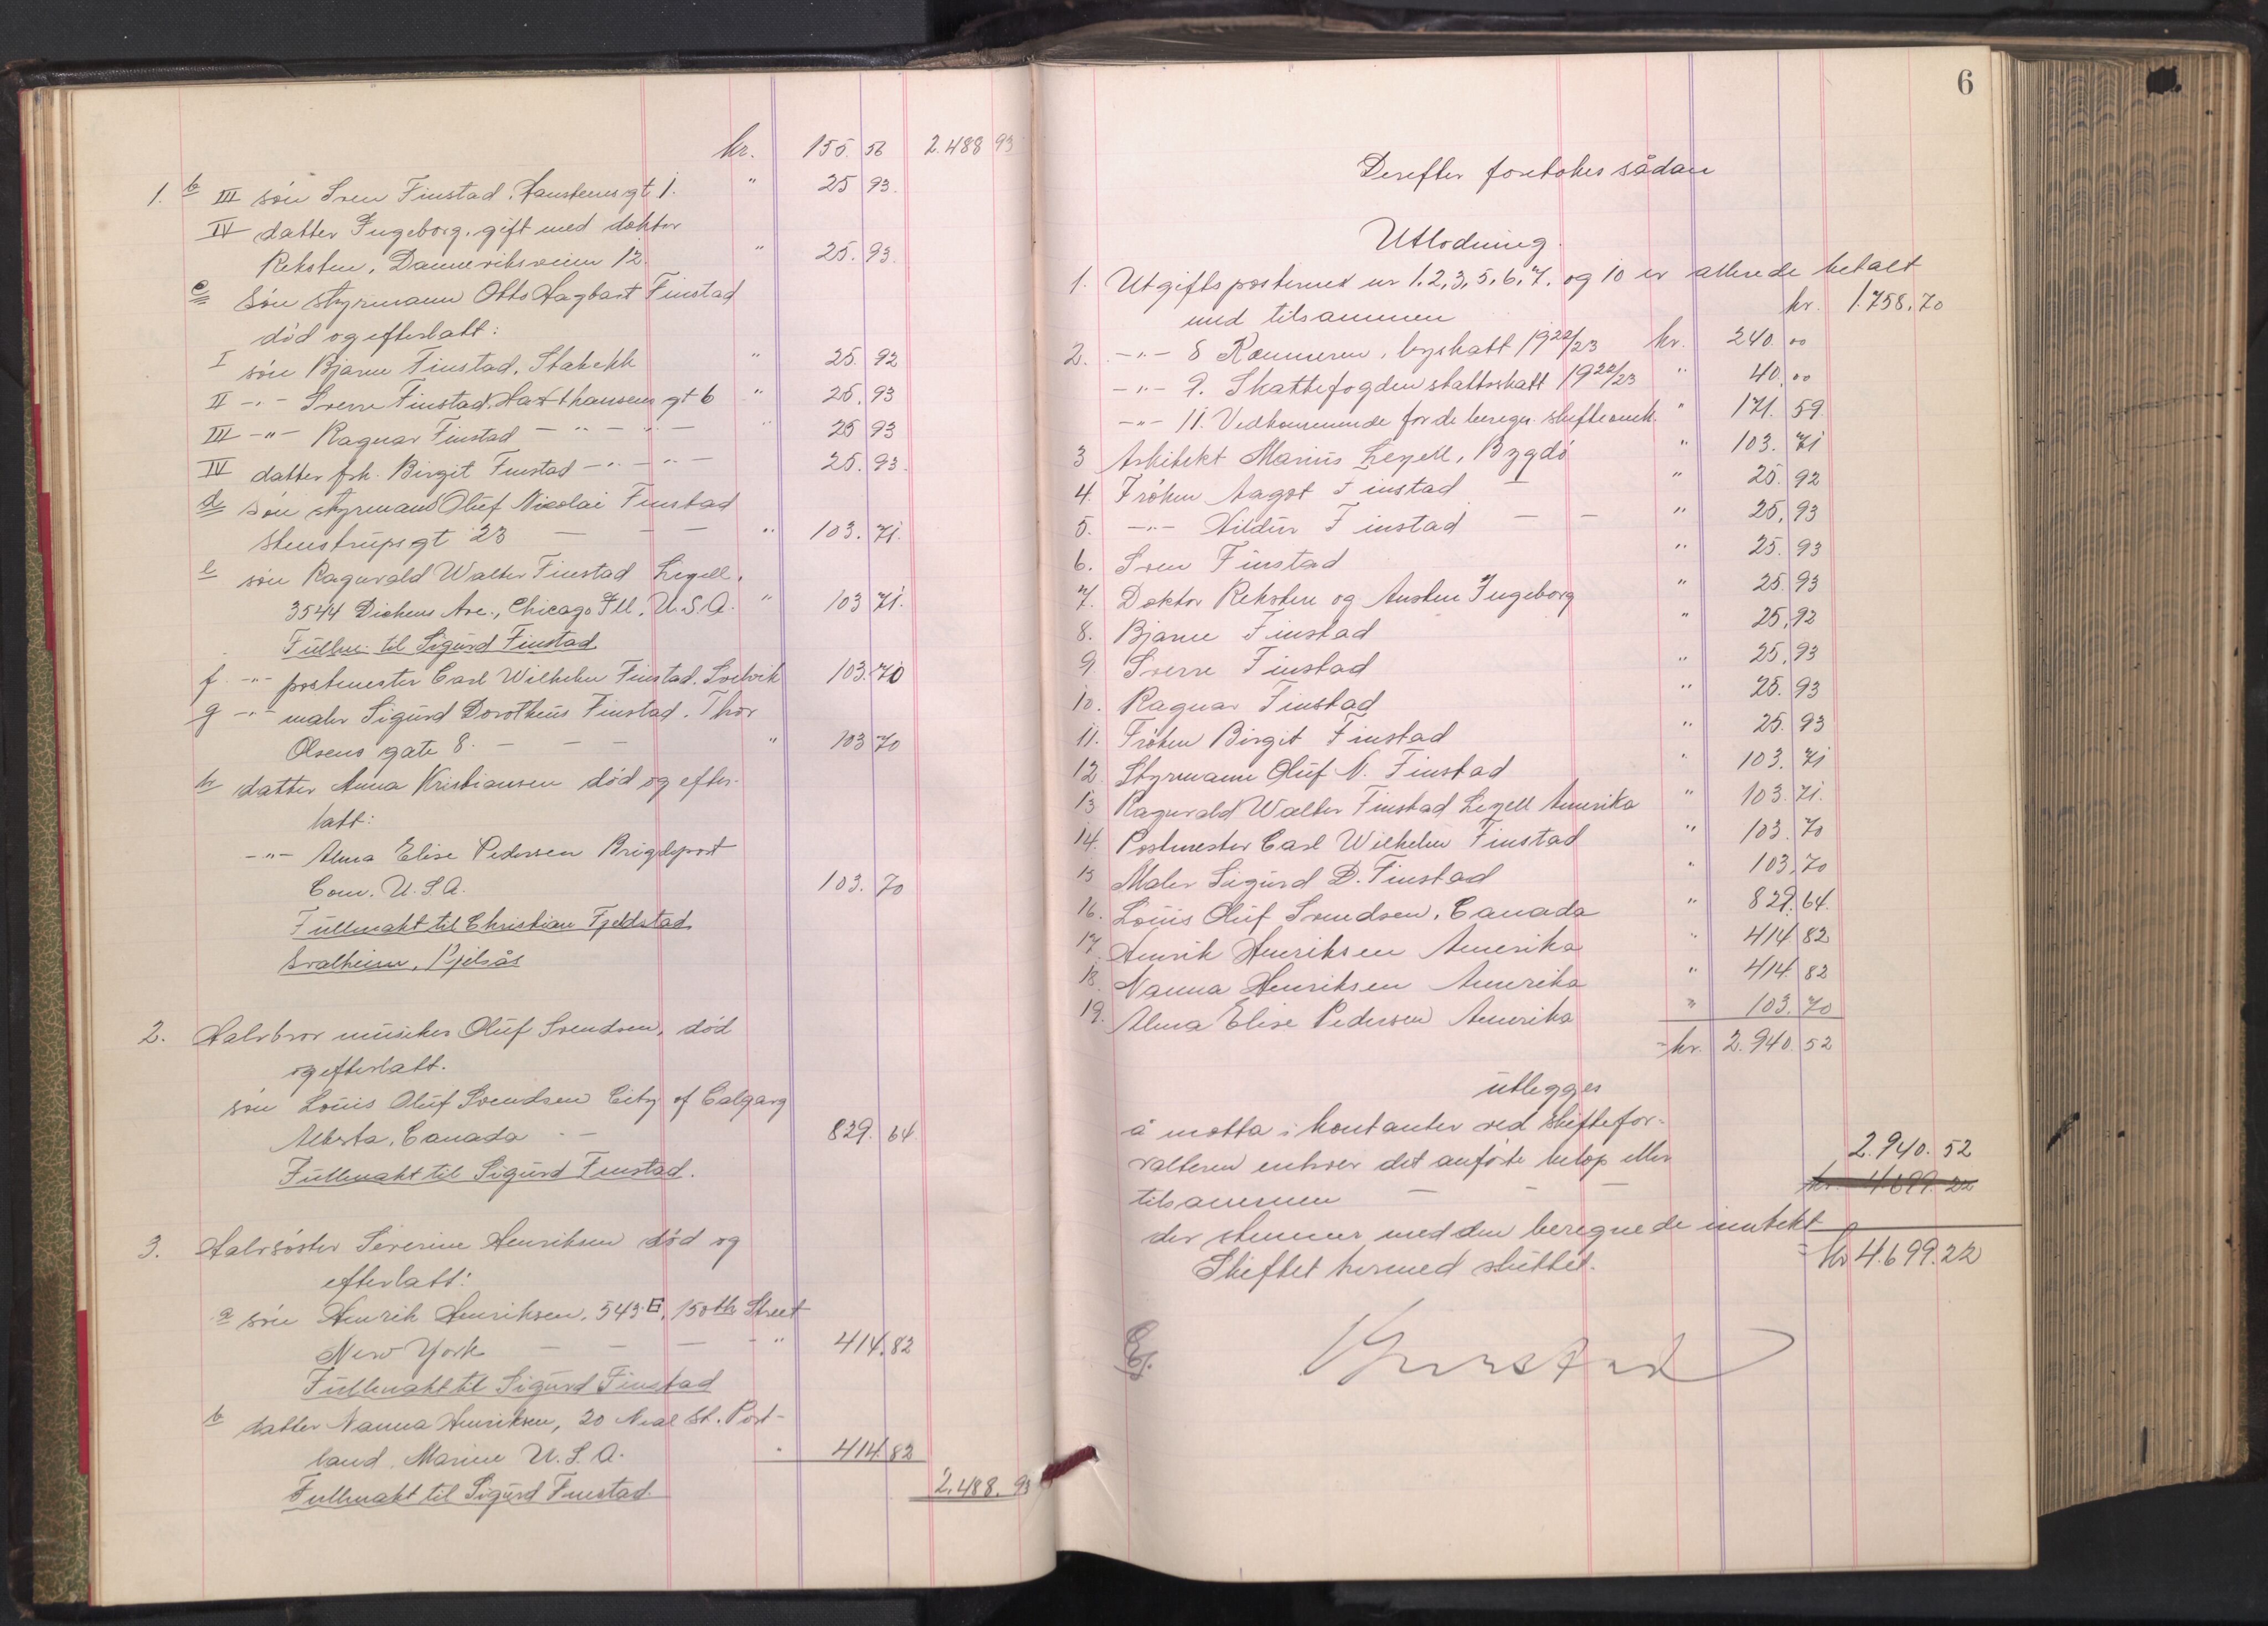 kr. 155. 56 2.488 93
1. b III sön Sven Finstad, Hanstensgt 1. " 25 93.
IV datter Ingeborg, gift med doktor
Reksten, Danmeriksveien 12. " 25. 93.
c sön styrmann Otto Hagbart Finstad
död og efterlatt:
I sön Bjarne Finstad, Stabekk " 25. 92
II -"- Sverre Finstad, Haxthausens gt 6 " 25. 93
III -"- Ragnar Finstad — " — " — " 25 93
IV datter frk. Birgit Finstad — " — " — 25. 93.
d sön styrmand Oluf Nicolai Finstad
Stenstrupsgt 23 — — — " 103. 71.
e sön Ragnvald Walter Finstad Legell,
3544 Dickens Ave., Chicago Ill, U.S.A. " 103 71.
Fullm. til Sigurd Finstad
f. -"- postmester Carl Wilhelm Finstad, Svelvik 103. 70
g -"- maler Sigurd Dorotheus Finstad, Thor
Olsens gate 8. — — — " 103 70
h datter Anna Kristiansen död og efter-
latt:
-"- Alma Elise Pedersen Brigdeport
Conn. U.S.A. 103. 70
Fullmakt til Christian Fjeldstad
Svalheim, Kjelsås
2. Halvbror musiker Oluf Svendsen, död
og efterlatt.
sön Louis Oluf Svendsen City of Calgary
Alberta, Canada - — 829. 64.
Fullmakt til Sigurd Finstad.
3. Halvsöster Severine Henriksen död og
efterlatt:
a sön Henrik Henriksen, 543 E, 150th Street
New York — — — - " 414. 82
Fullmakt til Sigurd Finstad
b datter Nanna Henriksen, 20 Neal St. Port-
land, Marine U.S.A. " 414. 82
Fullmakt til Sigurd Finstad. 2.488. 93
6
Derefter foretokes sådan
Utlodning.
1. Utgiftsposterne nr 1, 2, 3, 5, 6, 7, og 10 er allerede betalt
med tilsammen kr. 1.758,70
2. -"- 8 Kemneren, byskatt 1922/23 kr. 240 00
-"- 9. Skattefogden stattsskatt 1922/23 " 40. 00
-"- 11. Vedkommende for de beregn. skifteomk. " 171. 59.
3 Arkitekt Marius Legell, Bygdö " 103. 71
4. Fröken Aagot Finstad — " 25. 92
5. -"- Hildur Finstad — — " 25, 93
6. Sven Finstad " 25. 93
7. Doktor Reksten og hustru Ingeborg " 25. 93
8. Bjarne Finstad " 25, 92
9 Sverre Finstad " 25, 93
10. Ragnar Finstad " 25. 93
11. Fröken Birgit Finstad " 25. 93
12. Styrmann Oluf N. Finstad " 103. 71
13 Ragnvald Walter Finstad Legell Amerika " 103. 71.
14. Postmester Carl Wilhelm Finstad " 103. 70
15 Maler Sigurd D. Finstad " 103, 70
16. Louis Oluf Svendsen, Canada " 829. 64.
17. Henrik Henriksen Amerika " 414 82
18. Nanna Henriksen Amerika " 414. 82
19. Alma Elise Pedersen Amerika " 103. 70
= kr. 2.940. 52
utlegges
å motta i kontanter ved skiftefor-
valteren enhver det anförte belöp eller
tilsammen — — — 2.940. 52
kr. 4.699. 22
der stemmer med den beregnede inntekt
= kr 4.699.22
Skiftet hermed sluttet.